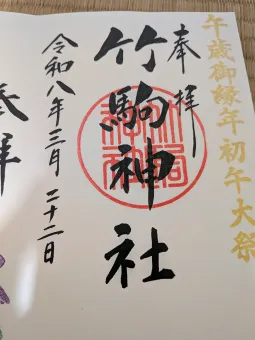 午歳御縁年初午大祭
奉拝
竹駒神社
令和八年三月二十二日
奉拝